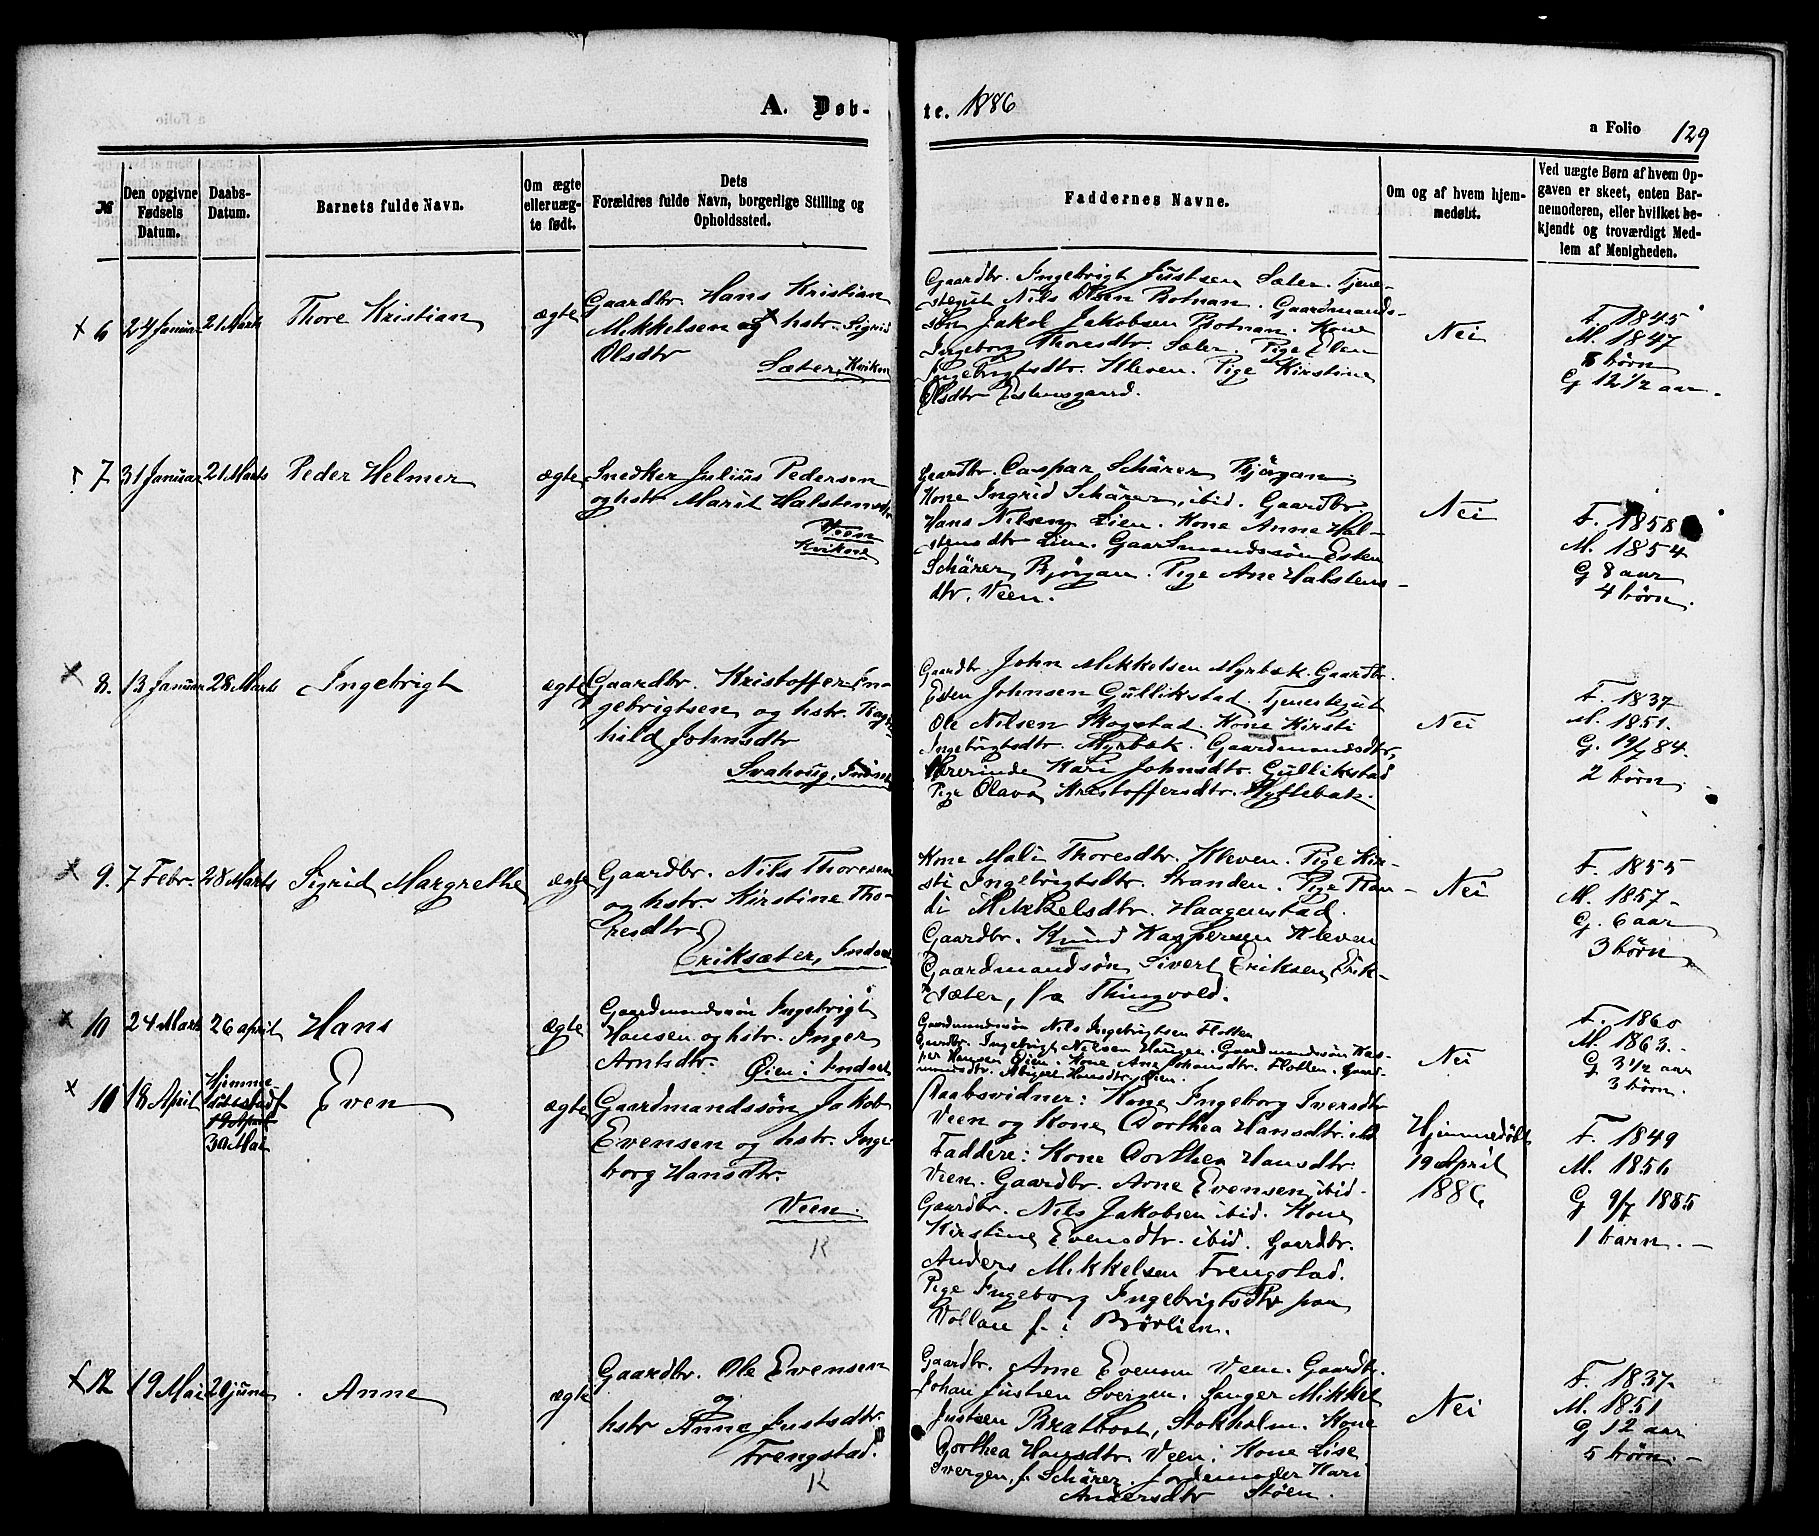 A. Døb-
te. 1886
a Folio 129
№
Den opgivne Fødsels Datum.
Daabs-Datum.
Barnets fulde Navn.
Om ægte eller uæg-te født.
Dets
Forældres fulde Navn, borgerlige Stilling og
Opholdssted.
Faddernes Navne.
Om og af hvem hjem-
medøbt.
Ved uægte Børn af hvem Op-
gaven er skeet, enten Bar-
nemoderen, eller hvilket be-
kjendt og troværdigt Med-
lem af Menigheden.
6 24 Januar 21 Marts Thore Kristian ægte
Gaardbr. Hans Kristian
Mikkelsen og hstr. Sigrid
Olsdtr
Sæter, Kvikne
Gaardbr. Ingebrigt Justsen Sæter. Tjene-
stegut Nils Olsen Botnan. Gaardmands-
søn Jakob Jakobsen Botnan. Kone
Ingeborg Thoresdtr. Sæter. Pige Elen
Ingebrigtsdtr. Kleven. Pige Kirstine
Olsdtr Estensgaard.
Nei
F. 1845
M. 1847
8 børn
G 12 1/2 aar
7 31 Januar 21 Marts Peder Helmer ægte
Snedker Julius Pedersen
og hstr Marit Halstensdtr
Veen
Kvikne
Gaardbr. Caspar Schärer Bjørgan
Kone Ingrid Schärer, ibid. Gaardbr
Hans Nilsen Lien. Kone Anne Hal-
stensdtr Lien. Gaardmandssøn Esten
Schärer Bjørgan. Pige Ane Halstens-
dtr. Veen.
Nei
F. 1858
M. 1854
G 8 aar
4 børn.
8. 13 Januar 28 Marts Ingebrigt ægte
Gaardbr. Kristoffer In-
gebrigtsen og hstr. Ragn
hild Johnsdtr
Svahaug,
Gaardbr. John Mikkelsen Myrbæk. Gaardbr.
Esten Johnsen Gullikstad. Tjenestegut
Ole Nilsen Skogstad. Kone Kirsti
Ingebrigtsdtr. Myrbæk. Gaardmandsdtr,
Lærerinde Kari Johnsdtr. Gullikstad
Pige Olava Kristoffersdtr.
Nei
F. 1837
M. 1851.
G. 19/7 84.
2 børn
9. 7 Febr. 28 Marts Sigrid Margrethe ægte
Gaardbr. Nils Thoresen
og hstr. Kirstine Tho-
resdtr
Eriksæter, Indset
Kone Mali Thoresdtr. Kleven. Pige Kir-
sti Ingebrigtsdtr. Stranden. Pige Ran-
di Mikkelsdtr. Haagenstad.
Gaardbr. Knud Kaspersen Kleven
Gaardmandsøn Sivert Eriksen Erik-
sæter, fra Thingvold.
Nei
F. 1855
M. 1857
G. 6 aar
3 børn
10 24 Marts 26 april Hans ægte
Gaardmandssøn Ingebrigt
Hansen og hstr. Inger
Arntsdtr. Øien i Indset
Gaardmandssøn Nils Ingebrigtsen Flotten
Gaardbr. Ingebrigt Nilsen Haugen. Gaardmandssøn Kas-
per Hansen Øien. Kone Ane Johansdtr. Flotten. Gaard-
mandsdtr. Abigael Hansdtr. Øien.
Nei
F. 1860
M. 1863.
G 3 1/2 aar
3 børn.
11 18 April Hjemme
døbt
19 April
30 Mai Even ægte
Gaardmandssøn Jakob
Evensen og hstr. Inge-
borg Hansdtr.
Veen.
K
Daabsvidner: Kone Ingeborg Iversdtr
Veen og Kone Dorthea Hansdtr. ibid
Faddere: Kone Dorthea Hansdtr.
Veen. Gaardbr. Arne Evensen, ibid.
Gaardbr. Nils Jakobsen ibid. Kone
Kirstine Evensdtr. ibid. Gaardbr.
Anders Mikkelsen Frengstad.
Pige Ingeborg Ingebrigtsdtr paa
Vollan f. i Børlien.
Hjemmedøbt
19 April
1886
F. 1849
M. 1856
G 9/7 1885
1 barn.
12 19 Mai 20 juni Anne ægte
Gaardbr. Ole Evensen
og
hstr Anne Justsdtr.
Frengstad.
K
Gaardbr. Arne Evensen Veen. Gaardbr.
Johan Justsen Svergen. Sanger Mikkel
Justsen Brattoot, Stokholm. Kone
Dorthea Hansdtr. Veen. Kone Lise
Svergen, f. Schärer. Jordemoder Kari
Andersdtr Støen.
Nei
F. 1837
M. 1851
G 12 aar
5 børn.